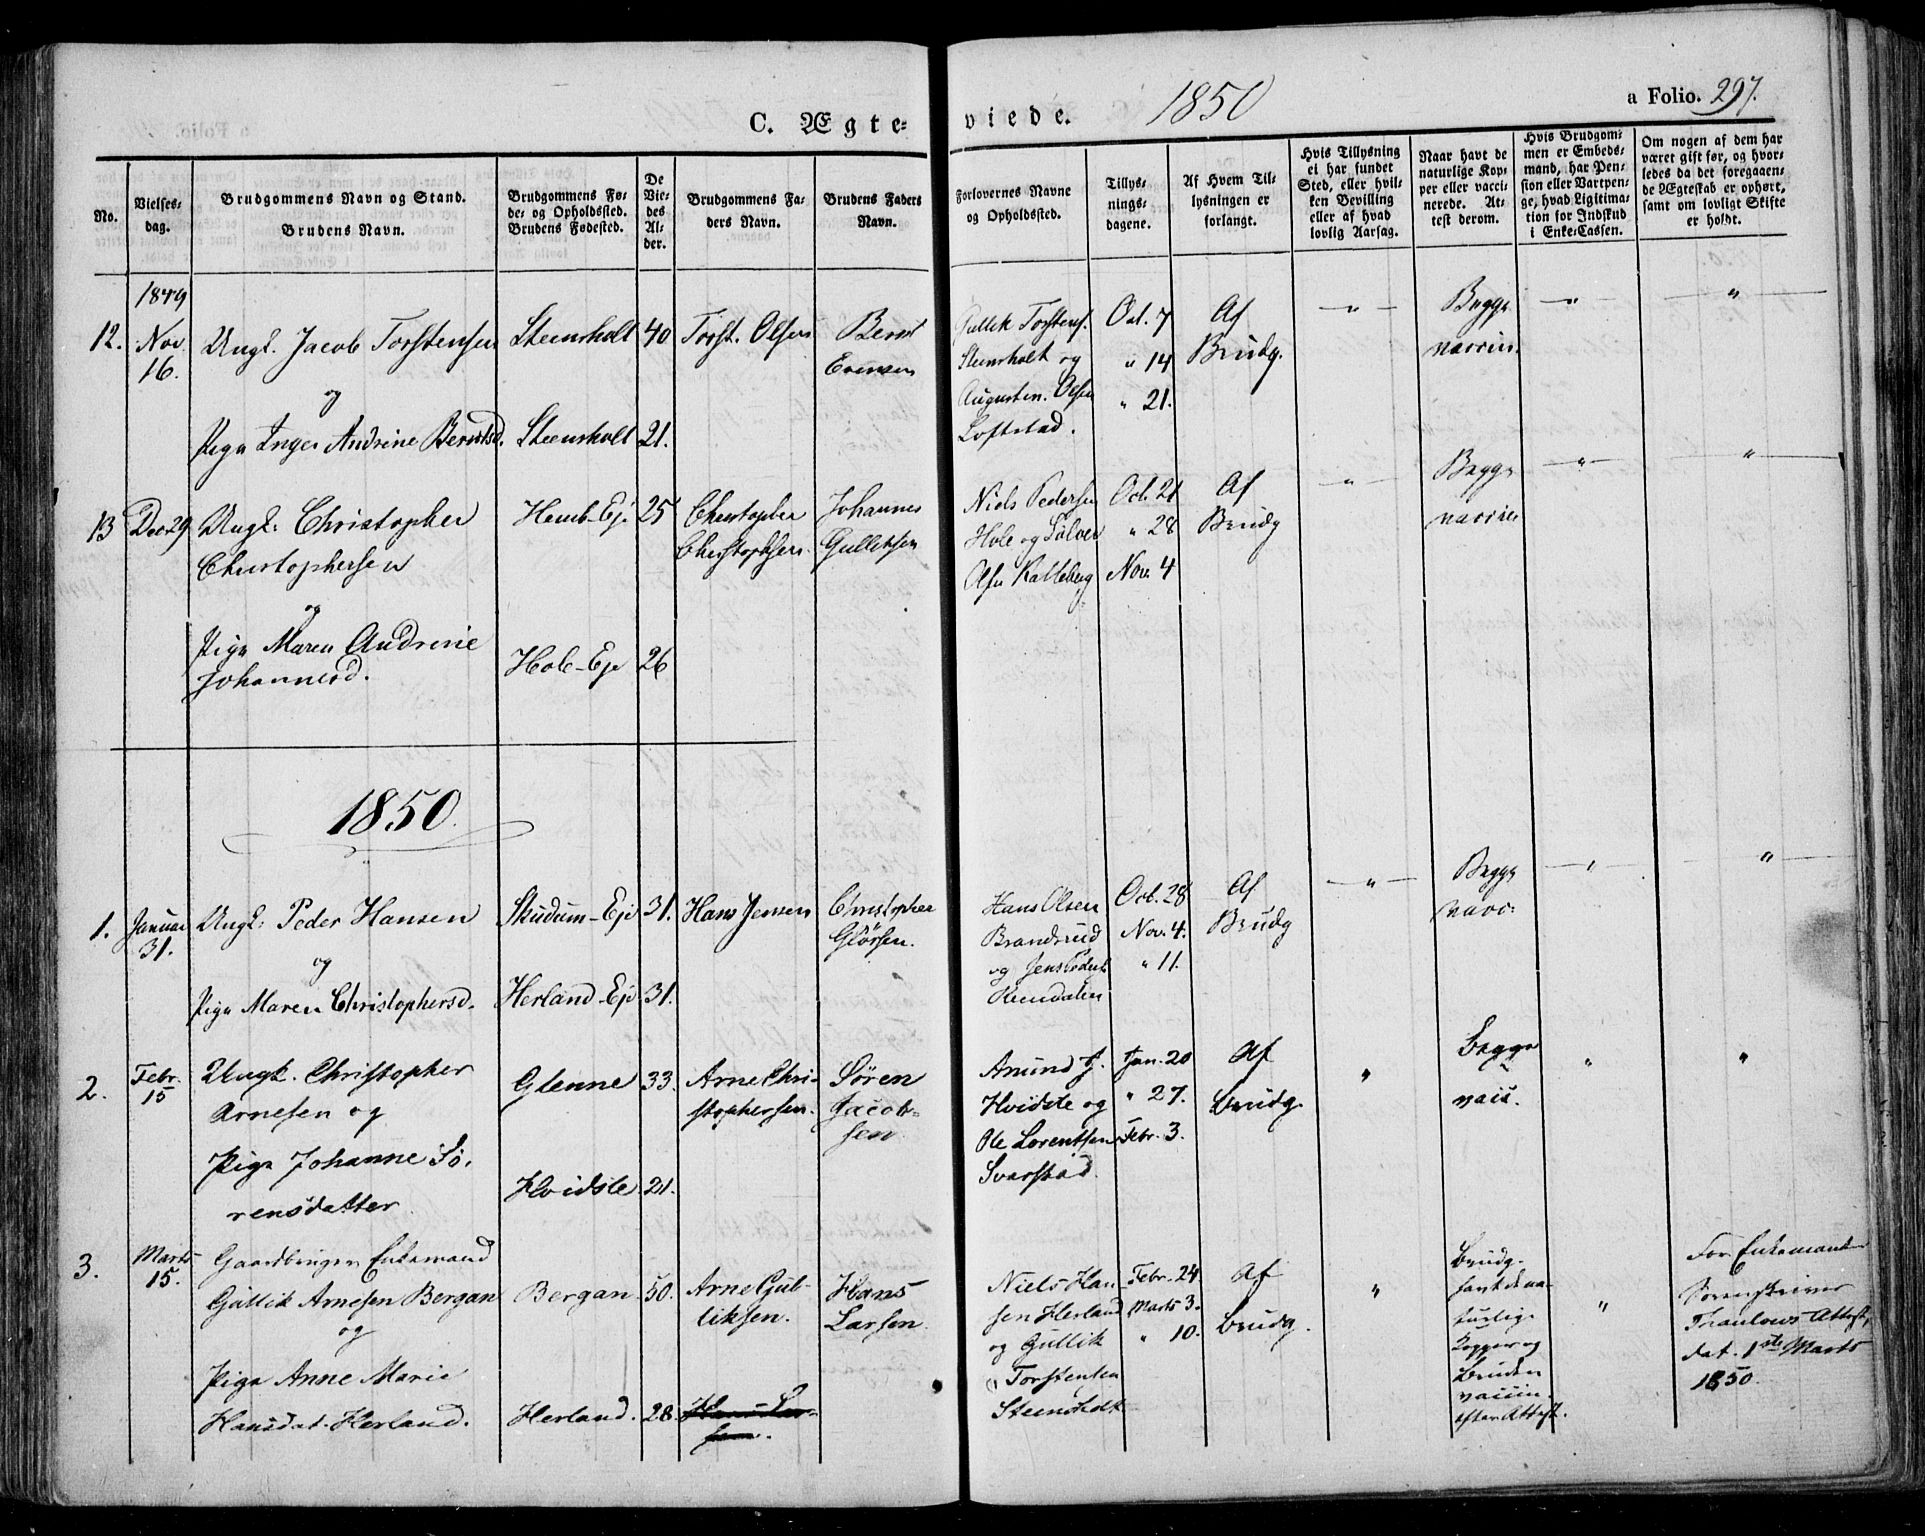 C. Ægte-
viede.
1850
a Folio. 297.
No.
Vielses-
dag.
Brudgommens Navn og Stand.
Brudens Navn.
Brudgommens Fø-
de- og Opholdssted.
Brudens Fødested.
De
Vie-
des
Al-
der.
Brudgommens Fa-
ders Navn.
Brudens Faders
Navn.
Forlovernes Navne
og Opholdssted.
Tillys-
nings-
dagene.
Af Hvem Til-
lysningen er
forlangt.
Hvis Tillysning
ei har fundet
Sted, eller hvil-
ken Bevilling
eller af hvad
lovlig Aarsag.
Naar havt de
naturlige Kop-
per eller vacci-
nerede. At-
test derom.
Hvis Brudgom-
men er Embeds-
mand, har Pen-
sion eller Vartpen-
ge, hvad Ligitima-
tion for Indskud
i Enke-Cassen.
Om nogen af dem har
været gift før, og hvor-
ledes da det foregaaen-
de Ægteskab er ophørt,
samt om lovligt Skifte
er holdt.
1849
12.
Nov.
16.
Ungk. Jacob Torstensen
og
Pige Inger Andrine Berntsd.
Steensholt
Steensholt
40
21.
Torst. Olsen
Bernt
Evensen
Gullik Torstens.
Steensholt og
Augusten. Olsen
Loftstad.
Oct. 7
" 14
" 21.
Af
Brudg.
"
Begge
vaccin.
"
"
13
Dec 29
Ungk: Christopher
Christophersen
og
Pige Maren Andrine
Johannesd.
Hemb-Eje
Hole-Eje
25
26
Christopher
Christophsen.
Johannes
Gulliksen
Niels Pedersen
Hole og Sølver
Olsen Kalleberg
Oct. 21
" 28
Nov. 4
Af
Brudg
"
Begge
vaccin
"
"
1850.
1.
Januar
31.
Ungk: Peder Hansen
og
Pige Maren Christophersd.
Skudum-Eje
Herland-Eje
31.
31.
Hans Jensen
Christopher
Glørsen.
Hans Olsen
Brandsrud
og Jens Peders.
Oct. 28
Nov. 4.
" 11.
Af
Brudg
"
Begge
vacc:
"
"
2.
Febr.
15
Ungk. Christopher
Arnesen og
Pige Johanne Sö.
rensdatter
Glenne
Hvidste
33.
21.
Arne Chri-
stophersen.
Sören
Jacob-
sen.
Amund J.
Hvidste og
Ole Lorentsen
Svarstad.
Jan. 20
" 27.
Febr. 3.
Af
Brudg.
"
Begge
vacc.
"
"
3.
Marts
15.
Gaardbruger Enkemand
Gullik Arnesen Bergan
og
Pige Anne Marie
Hansdat. Herland.
Bergan
Herland.
50.
28.
Arne Gul-
liksen.
Hans Lar-
sen.
Hans
Larsen.
Niels Han
sen Herland
og Gullik
Torstensen
Steensholt
Febr. 24
Marts 3.
" 10.
Af
Brudg.
"
Brudg.
havt de na-
turlige
Kopper og
Bruden
vaccin.
efter Attest.
"
For Enkemand
Sorenskriver
Thaulows Attest,
dat. 1ste Marts
1850.